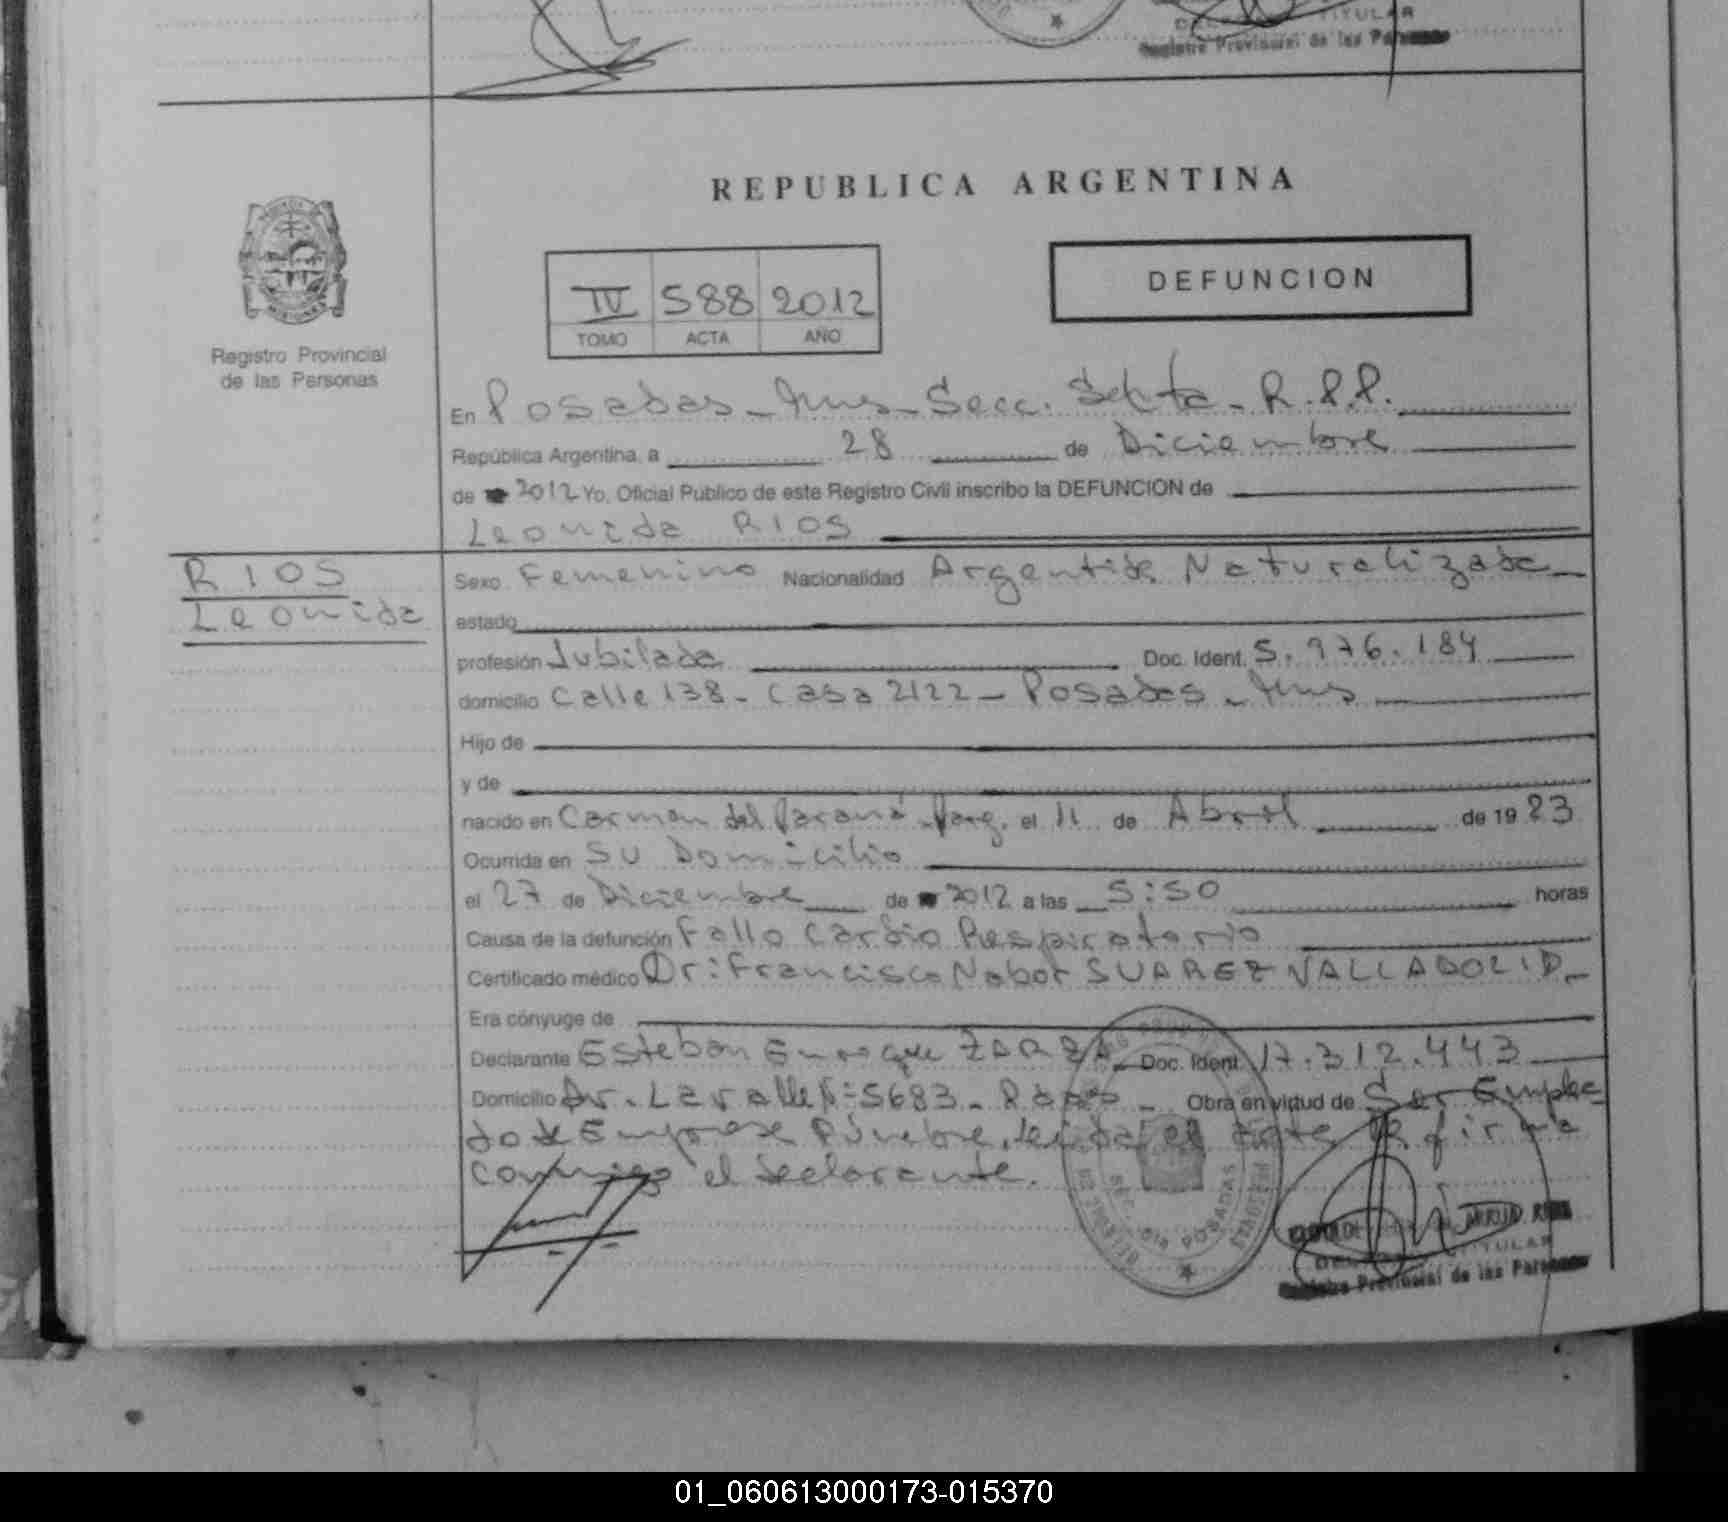 TITULAR
Registro Provincial de las Personas
REPUBLICA ARGENTINA
DEFUNCION
IV 588 2012
TOMO ACTA AÑO
Registro Provincial
de las Personas
En Posadas - Mnes - Secc. Sexta - R.P.P.
República Argentina, a 28 de Diciembre
de 2012 Yo, Oficial Público de este Registro Civil inscribo la DEFUNCION de
Leonida RIOS
RIOS
Leonida
Sexo Femenino Nacionalidad Argentina Naturalizada
estado
profesión Jubilada Doc. Ident. 5.976.184
domicilio Calle 138 - Casa 2122 - Posadas - Mnes
Hijo de
y de
nacido en Carmen del Paraná - Parg. el 11 de Abril de 1923
Ocurrida en su Domicilio
el 27 de Diciembre de 2012 a las 5:50 horas
Causa de la defunción Fallo Cardio Respiratorio
Certificado médico Dr: Francisco Nabor SUAREZ VALLADOLID
Era cónyuge de
Declarante Esteban Enrique ZARZA Doc. Ident. 17.312.443
Domicilio Av. Lavalle Nº 5683 - Pdas - Obra en virtud de Ser Emplea
do de Empresa Fúnebre, leida el acta la firma
conmigo el declarante.
POSADAS
TITULAR
Registro Provincial de las Personas
01_060613000173-015370